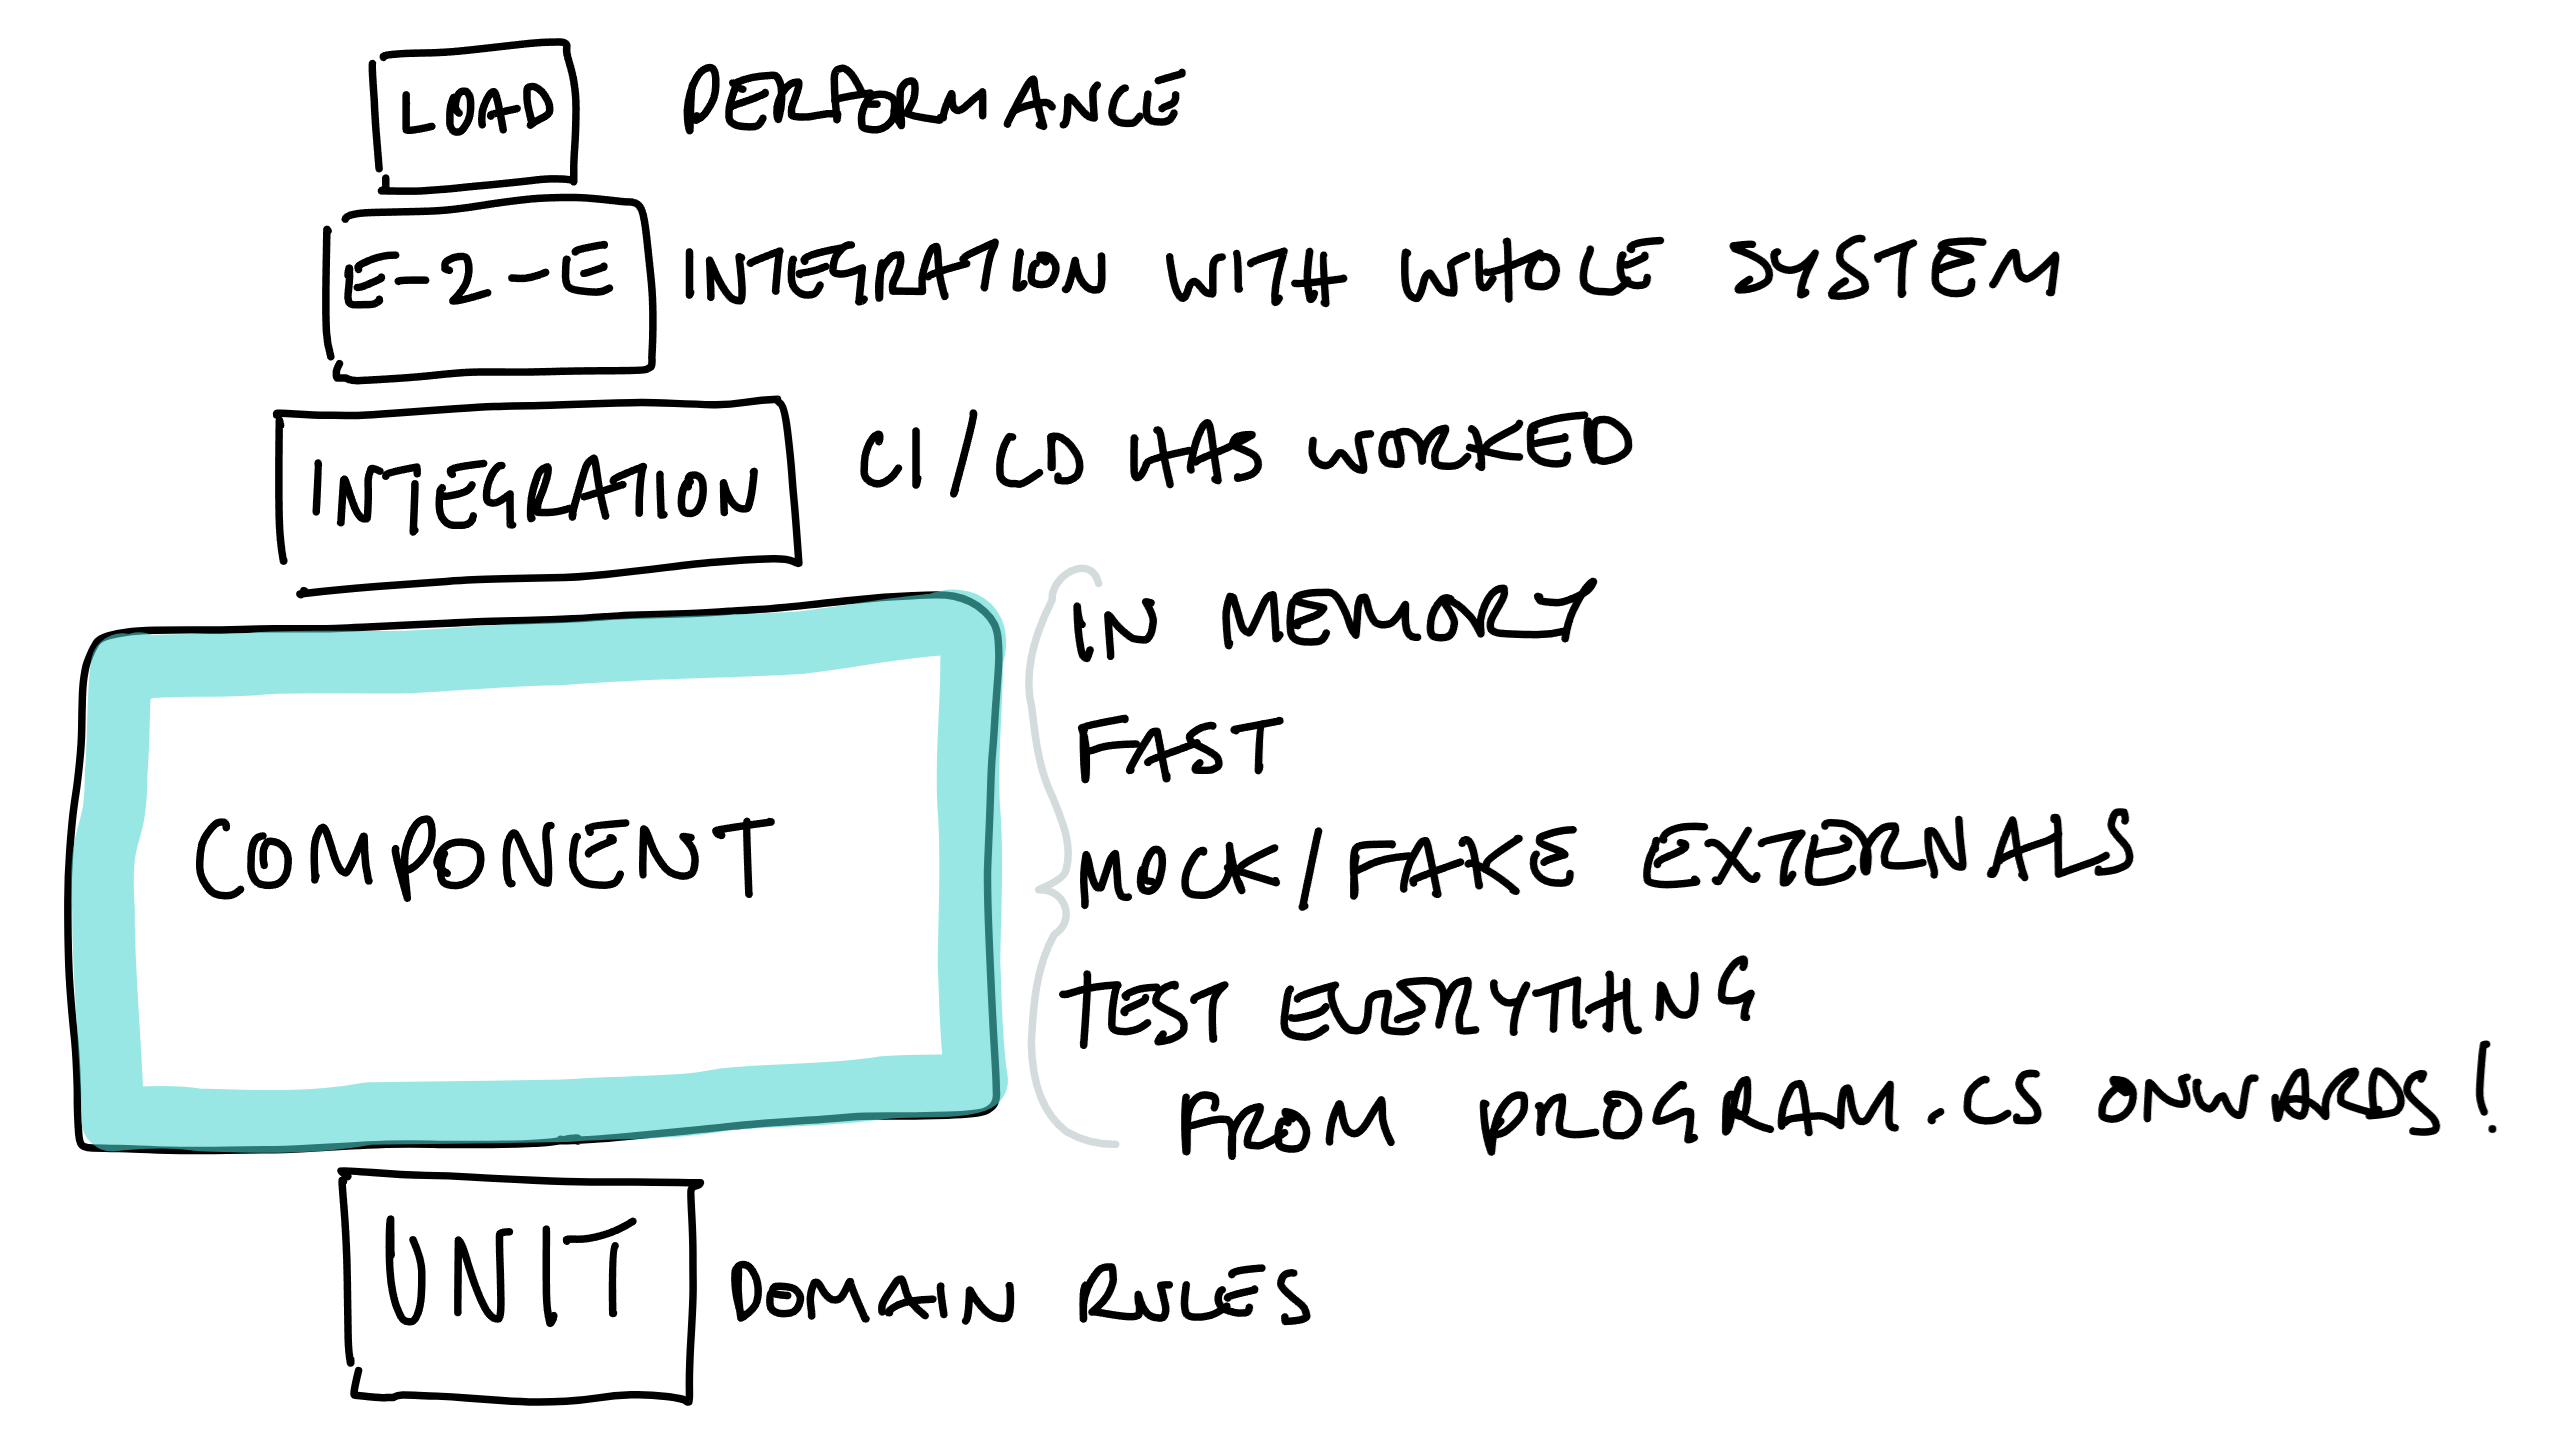 LOAD PERFORMANCE
E-2-E INTEGRATION WITH WHOLE SYSTEM
INTEGRATION CI/CD HAS WORKED
COMPONENT
IN MEMORY
FAST
MOCK/FAKE EXTERNALS
TEST EVERYTHING
FROM PROGRAM.CS ONWARDS!
UNIT DOMAIN RULES